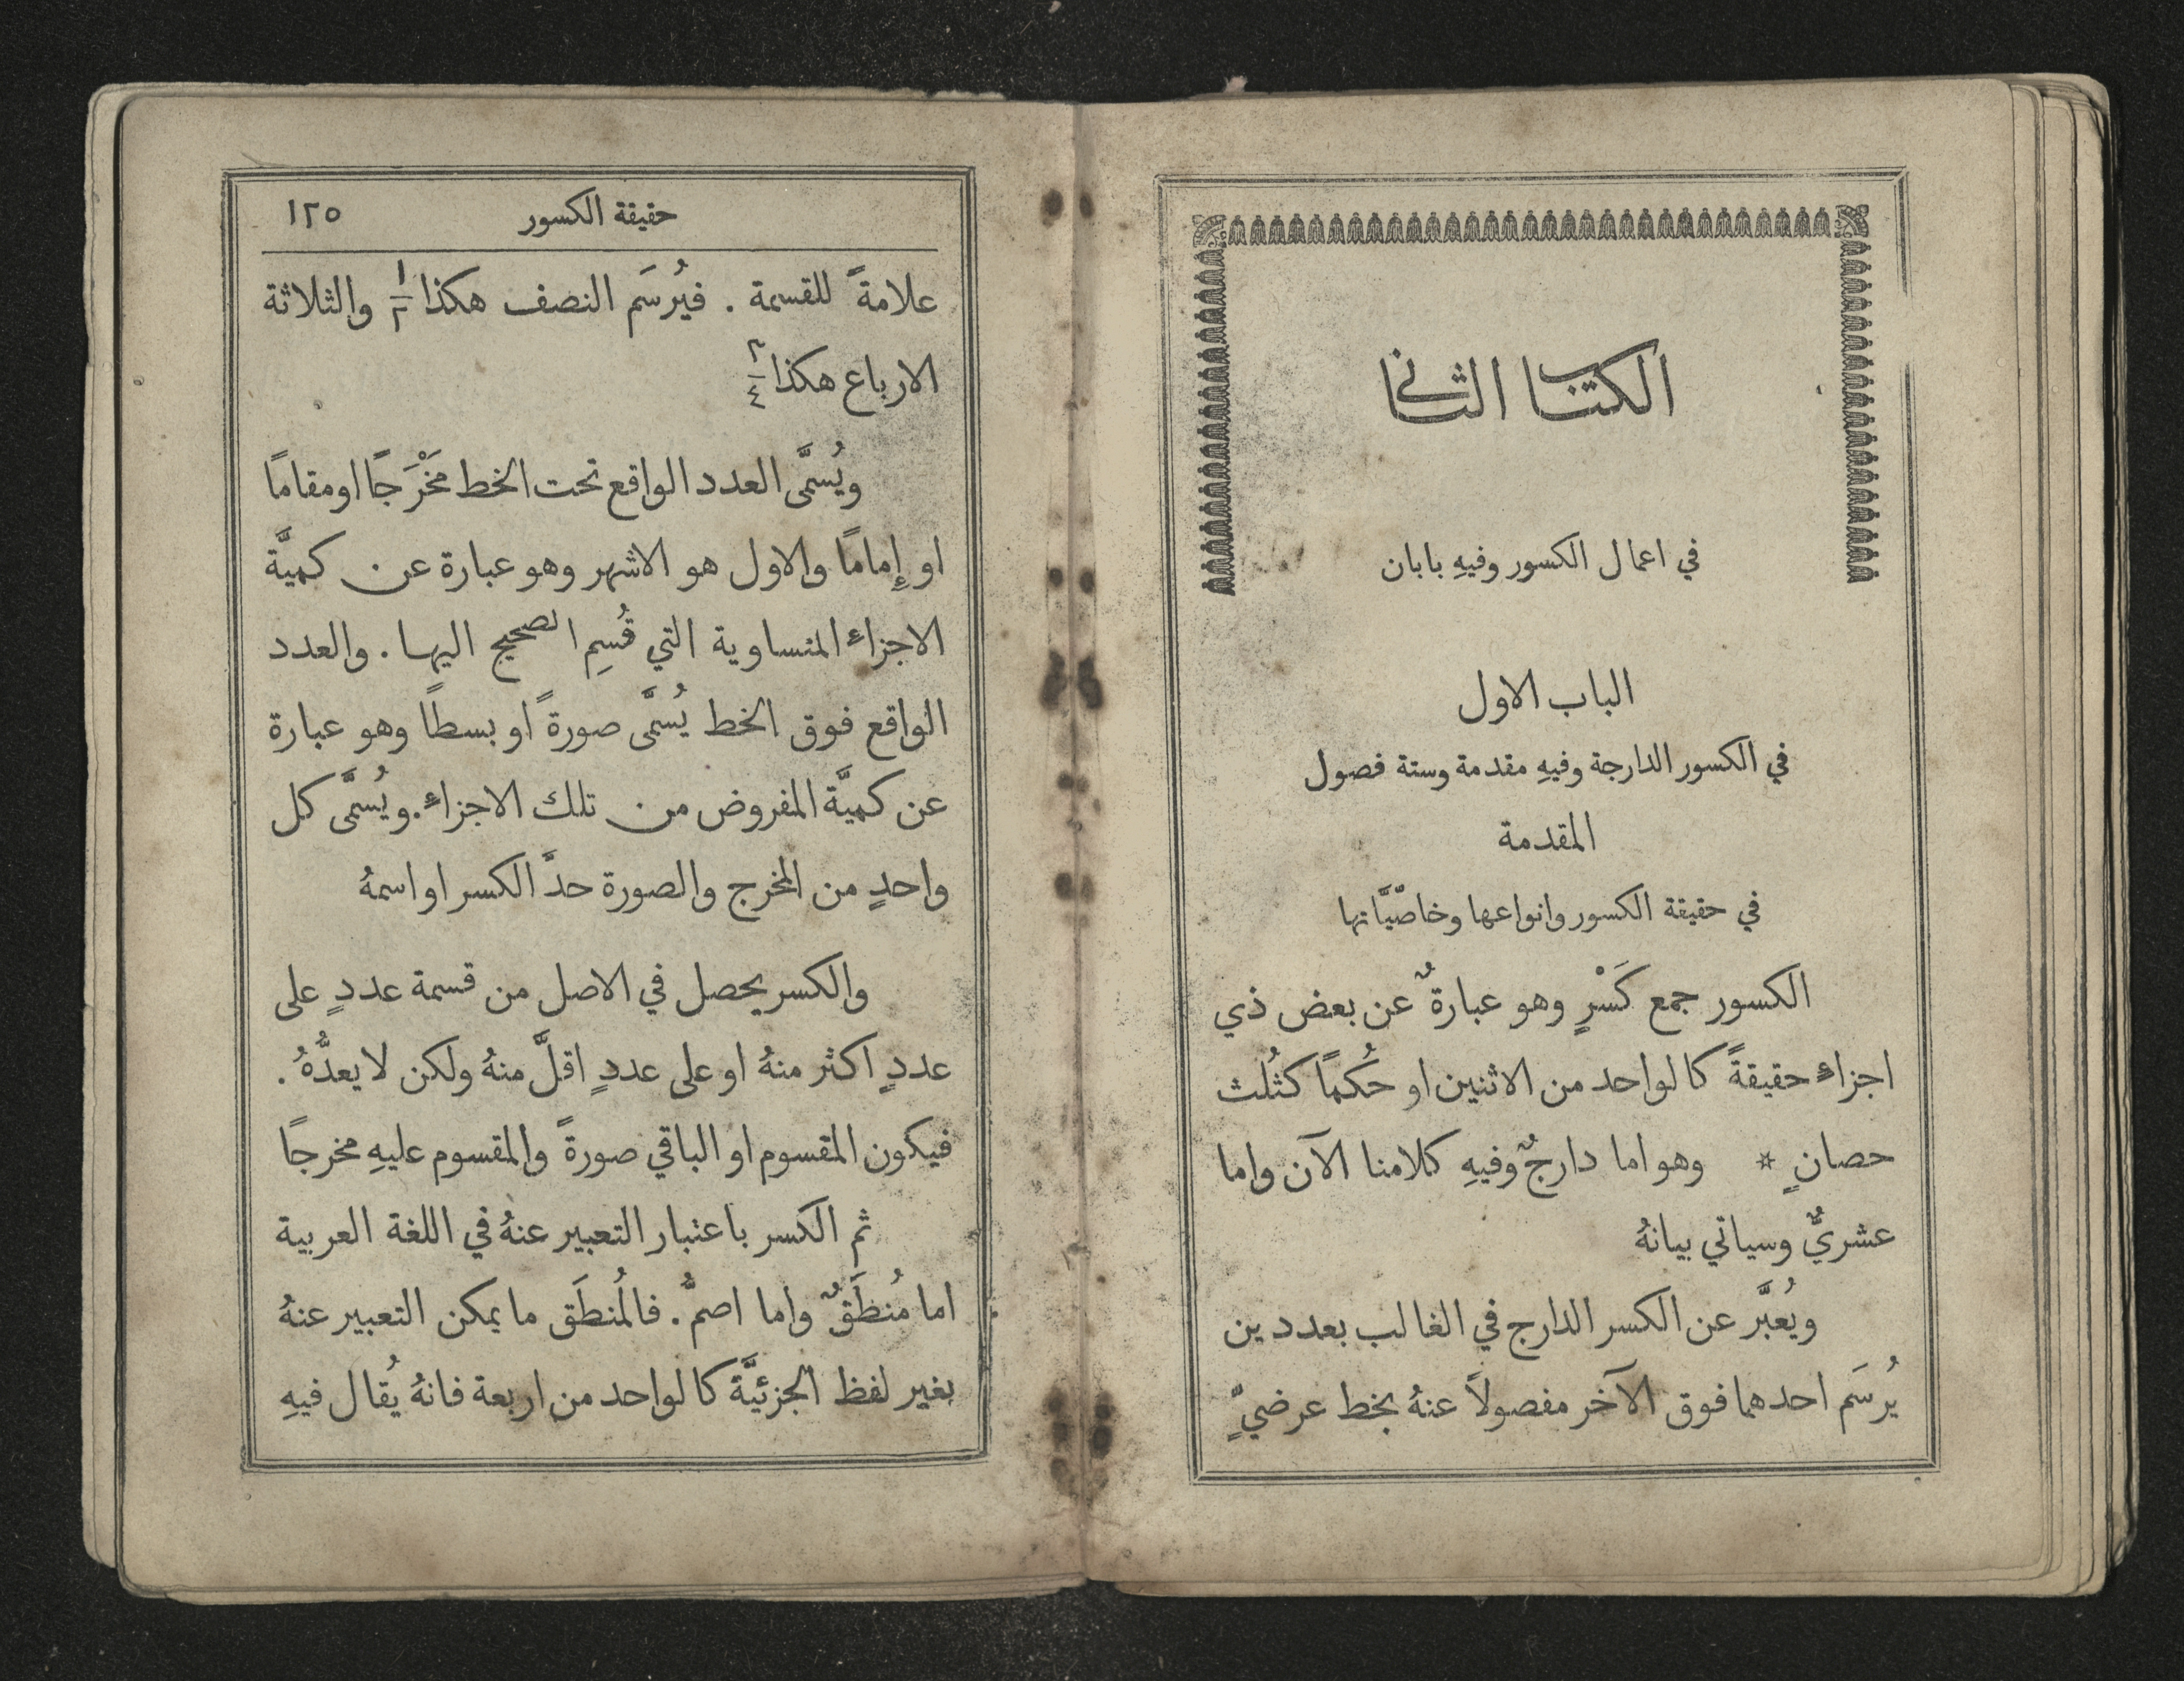 الكتاب الثاني
في اعمال الكسور وفيهِ بابان
الباب الاول
في الكسور الدارجة وفيهِ مقدمة وستة فصول
المقدمة
في حقيقة الكسور وانواعها وخاصّيَّاتها
الكسور جمع كَسْرٍ وهو عبارةٌ عن بعض ذي
اجزاءٍ حقيقةً كالواحد من الاثنين او حُكمًا كثُلث
حصانٍ * وهو اما دارجٌ وفيهِ كلامنا الآن واما
عشريٌّ وسياتي بيانهُ
ويُعبَّر عن الكسر الدارج في الغالب بعددين
يُرسَم احدهما فوق الآخر مفصولاً عنهُ بخط عرضيٍّ
حقيقة الكسور ١٢٥
علامةً للقسمة . فيُرسَم النصف هكذا ١/٢ والثلاثة
الارباع هكذا ٣/٤
ويُسمَّى العدد الواقع تحت الخط مَخْرَجًا او مقامًا
او إِمامًا والاول هو الاشهر وهو عبارة عن كميَّة
الاجزاءِ المتساوية التي قُسِم الصحيح اليها . والعدد
الواقع فوق الخط يُسمَّى صورةً او بسطًا وهو عبارة
عن كميَّة المفروض من تلك الاجزاءِ . ويُسمَّى كل
واحدٍ من المخرج والصورة حدَّ الكسر او اسمهُ
والكسر يحصل في الاصل من قسمة عددٍ على
عددٍ اكثر منهُ او على عددٍ اقلَّ منهُ ولكن لا يعدُّهُ .
فيكون المقسوم او الباقي صورةً والمقسوم عليهِ مخرجًا
ثم الكسر باعتبار التعبير عنهُ في اللغة العربية
اما مُنطَقٌ واما اصمُّ . فالمُنطَق ما يمكن التعبير عنهُ
بغير لفظ الجزئيَّة كالواحد من اربعة فانهُ يُقال فيهِ